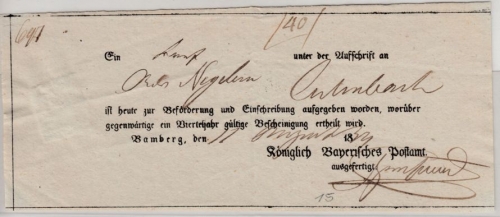 691
/40/
Ein unter der Aufschrift an
Culmbach
ist heute zur Beförderung und Einschreibung aufgegeben worden, worüber
gegenwärtige ein Vierteljahr gültige Bescheinigung ertheilt wird.
Bamberg, den 18
Königlich Bayerisches Postamt.
ausgefertigt
15